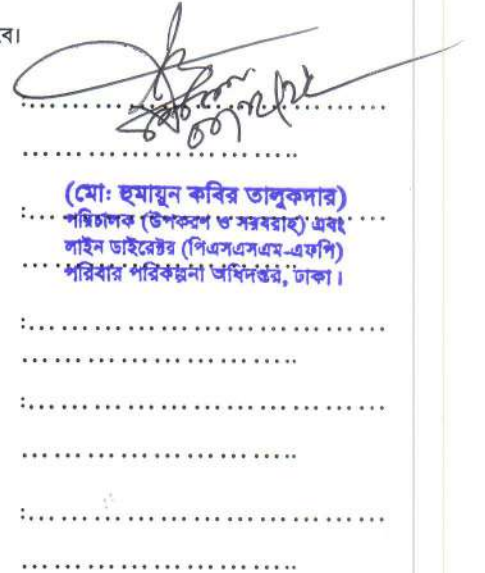 বে।
:........................................
..............................
(মোঃ হুমায়ুন কবির তালুকদার)
:........................................
পরিচালক (উপকরণ ও সরবরাহ) এবং
লাইন ডাইরেক্টর (পিএসএসএম-এফপি)
..............................
পরিবার পরিকল্পনা অধিদপ্তর, ঢাকা।
:........................................
..............................
:........................................
..............................
:........................................
..............................